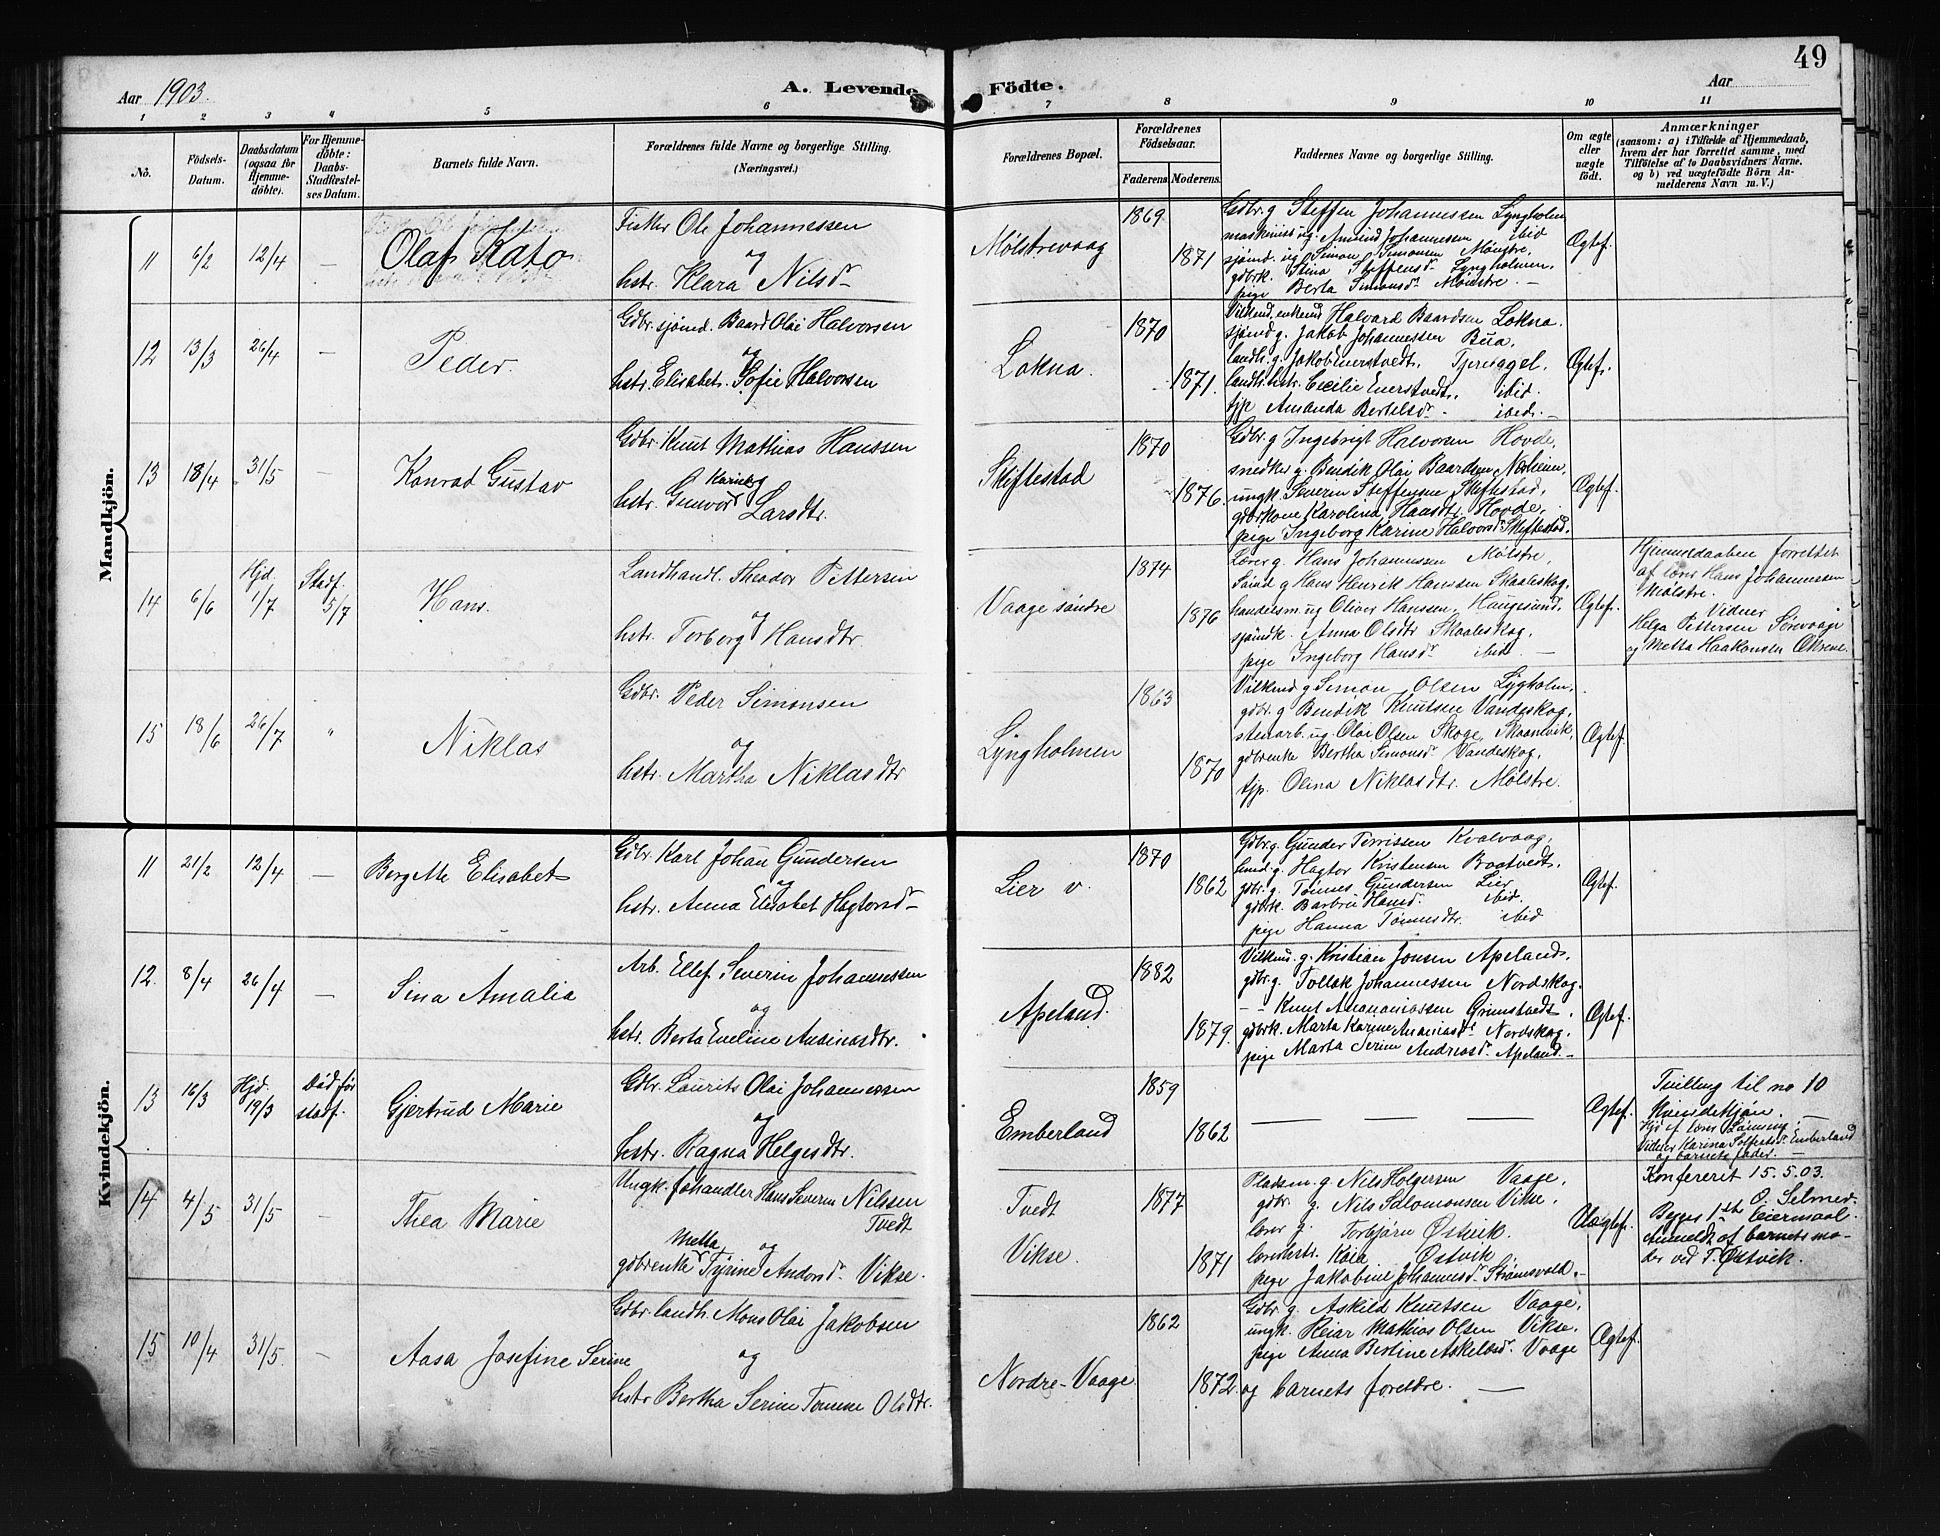 49
Aar 1903.
A. Levende Födte.
Aar
1 2 3 4 5 6 7 8 9 10 11
No.
Födsels-Datum.
Daabsdatum (ogsaa for Hjemmedöbte).
For Hjemmedöbte: Daabs-Stadfæstelses Datum.
Barnets fulde Navn.
Forældrenes fulde Navne og borgerlige Stilling.
(Næringsvei.)
Forældrenes Bopæl.
Forældrenes Födselsaar.
Faderens
Moderens.
Faddernes Navne og borgerlige Stilling.
Om ægte eller uægte födt.
Anmærkninger
(saasom: a) i Tilfælde af Hjemmedaab, hvem der har forrettet samme, med Tilföielse af to Daabsvidners Navne. og b) ved uægtefödte Börn Anmelderens Navn m. V.)
Mandkjön.
11 6/2 12/4 —
Olaf Kato
Fisker Ole Johannessen
og
hstr. Klara Nilsdr
Mølstrevaag
1869
1871
Gdbr. g Steffen Johannessen Lyngholm
maskinist ug. Amund Johannessen ibid
sjömd. ug Simon Simonsen Mölstre,
gdbrk. Stina Steffensdr Lyngholmen.
pige Berta Simonsdr Mölstre. —
Ægtef.
12 13/3 26/4 —
Peder.
Gdbr. sjömd. Baard Olai Halvorsen
og
hstr. Elisabet Sofie Halvorsen
Lokna.
1870
1871.
Vilkmd, enkemd Halvard Baardsen Lokna.
sjömd g. Jakob Johannessen Bua,
landh. g. Jakob Enerstvedt, Tjernaggel,
landh.hstr. Cecilie Enerstvedt, ibid.
tjp Amanda Bertelsdr. ibid. —
Ægtef.
13 18/4 31/5 —
Konrad Gustav
Gdbr. Knut Mathias Hanssen
og
hstr. Gunvor Karine Larsdtr.
Skiftestad
1870
1876.
Gdbr. g Ingebrigt Halvorsen Hovde,
snedker g. Bendik Olai Baardsen Nordheim,
ungk. Severin Steffensen Skiftestad,
gdbrkone Karolina Hansdtr Hovde,
pige Ingeborg Karine Halvorsdr Skiftestad.
Ægtef.
14 6/6 Hjd. 1/7 Stadf. 5/7
Hans.
Landhandl. Theodor Pettersen
og
hstr. Torborg Hansdtr.
Vaage söndre
1874
1876
Lærer g. Hans Johannessen Mølstre,
Sömd g Hans Henrik Hanssen Skaaleskog,
handelsm. ug Oliver Hanssen, Haugesund,
sjömdk. Anna Olsdtr Skaaleskog,
pige Ingeborg Hansdr ibid. —
Ægtef.
Hjemmedaaben forrettet
af lærer Hans Johannessen
Mølstre.
Vidner
Helga Pettersen Sörevaage
og Metta Haakonsen Økrene.
15 18/6 26/7 "
Niklas
Gdbr. Peder Simonsen
og
hstr. Martha Niklasdtr
Lyngholmen
1863
1870
Vilkmd g Simon Olsen Lygholm,
gdbr. g Bendik Knutsen Vandeskog,
stenarb. ug. Olai Olsen Skoge, Skaanevik,
gdbrenke Bertha Simonsdr Vandeskog,
tjp. Olina Niklasdtr. Mölstre.
Ægtef.
Kvindekjön.
11 21/2 12/4 —
Bergette Elisabet
Gdbr. Karl Johan Gundersen
og
hstr. Anna Elisabet Hagtorsdr
Lier v.
1870
1862
Gdbr. g. Gunder Terrissen Kvalvaag,
g. Hagtor Kristensen Baatvedt,
gdbr. g. Tönnes Gundersen Lier
gdbrk. Barbru Hansd. ibid.
pige Hanna Tönnesdtr. ibid
Ægtef.
12. 8/4 26/4 —
Sina Amalia
Arb. Ellef Severin Johannessen
og
hstr. Berta Eveline Andreasdtr.
Apeland.
1882
1879.
Vilkmd. g. Kristian Jonsen Apeland,
gdbr. g. Tollak Johannessen Nordskog.
— — Knut Ananiassen Grimstvedt.
gdbrk. Marta Karine Ananiasdr Nordskog.
pige Marta Serine Andreasdr Apeland. —
Ægtef.
13 16/3 Hjd. 19/3 Död før stadf.
Gjertrud Marie
Gdbr. Laurits Olai Johannessen
og
hstr. Ragna Helgesdtr.
Emberland
1859
1862
— — — —
Ægtef.
Tvilling til no 10
Kvindekjön. —
Hjd af lærer Lönning.
Vidner Karina Emberland
og barnets fader. —
14 4/5 31/5 —
Thea Marie
Ungk. fehandler Hans Severin Nilssen
Tvedt
og
gdbrenke Metta Tyrine Andorsdr Vikse.
Tvedt
Vikse.
1877
1871
Pladsm. g. Nils Holgersen Vaage,
gdbr. g. Nils Salomonsen Vikse,
lærer g. Torbjørn Østvik.
lærerhstr. Kaia Østvik,
pige Jakobine Johannesdr Strömsvold. —
Uægtef.
Konfererit 15.5.03.
O. Selmer.
Begges 1ste leiermaal.
Anmeldt af barnets mo-
der ved T. Østvik.
15 10/4 31/5. —
Aasa Josefine Serine
Gdbr. landh. Mons Olai Jakobsen
og
hstr Bertha Serine Tomine Olsdtr.
Nordre-Vaage
1862
1872.
Gdbr. g. Askild Knutsen Vaage,
ungk. Reiar Mathias Olsen Vikse.
pige Anna Bertine Askelsdr. Vaage
og barnets foreldre. —
Ægtef.